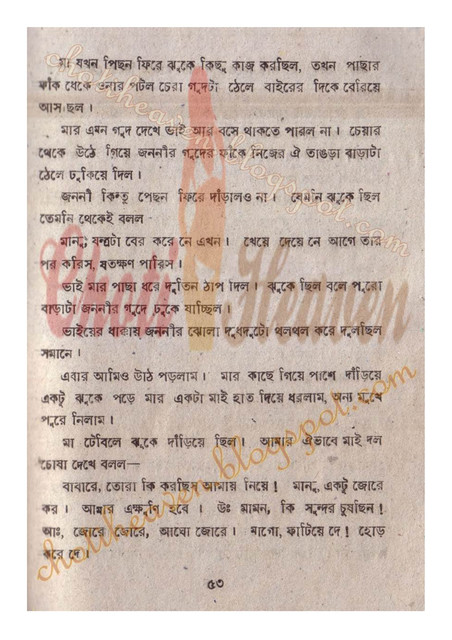 মা যখন পিছন ফিরে ঝুকে কিছু কাজ করছিল, তখন পাছার
ফাঁক থেকে ওনার পটল চেরা গুদটা ঠেলে বাইরের দিকে বেরিয়ে
আসছিল।
মার এমন গুদ দেখে ভাই আর বসে থাকতে পারল না। চেয়ার
থেকে উঠে গিয়ে জননীর গুদের ফাঁকে নিজের ঐ তাগড়া বাড়াটা
ঠেলে ঢুকিয়ে দিল।
জননী কিন্তু পেছন ফিরে দাঁড়ালও না। যেমনি ঝুকে ছিল
তেমনি থেকেই বলল—
মানু, যন্ত্রটা বের করে নে এখন। খেয়ে দেয়ে নে আগে তার
পর করিস, যতক্ষণ পারিস।
ভাই মার পাছা ধরে দুতিন ঠাপ দিল। ঝুকে ছিল বলে পুরো
বাড়াটা জননীর গুদে ঢুকে যাচ্ছিল।
ভাইয়ের ধাক্কায় জননীর ঝোলা দুধদুটো থলথল করে দুলছিল
সমানে।
এবার আমিও উঠে পড়লাম। মার কাছে গিয়ে পাশে দাঁড়িয়ে
একটু ঝুকে পড়ে মার একটা মাই হাত দিয়ে ধরলাম, অন্য মুখে
পুরে নিলাম।
মা টেবিলে ঝুকে দাঁড়িয়ে ছিল। আমার ঐভাবে মাই দল
চোষা দেখে বলল—
বাবারে, তোরা কি করছিস আমায় নিয়ে! মানু, একটু জোরে
কর। আমার এক্ষুণি হবে। উঃ মামন, কি সুন্দর চুষছিস!
আঃ, জোরে জোরে, আঘো জোরে। মাগো, ফাটিয়ে দে! হোড়
করে দে।
৫৩
Choti Heaven
chotiheaven.blogspot.com
chotiheaven.blogspot.com